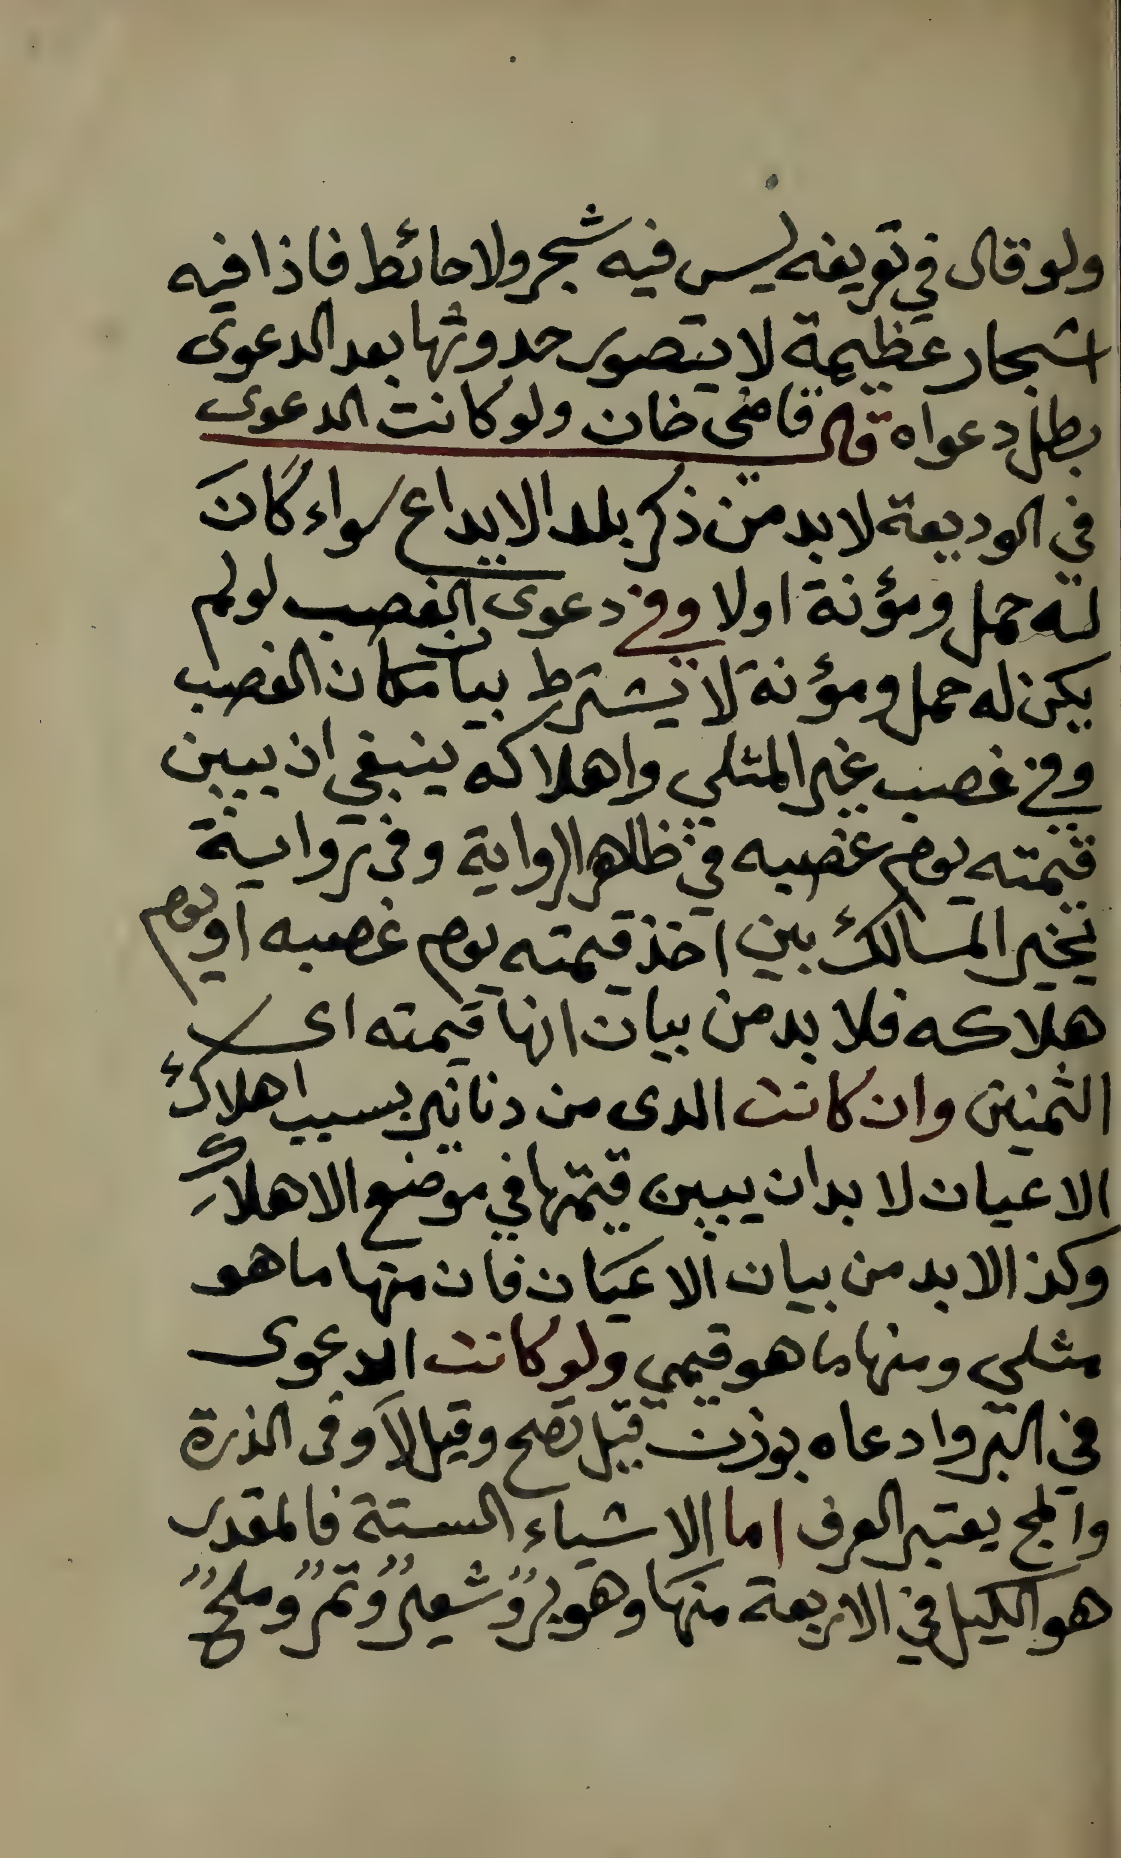 ولو قال في تعريفه ليس فيه شجر ولا حائط فاذا فيه
اشجار عظيمة لا يتصور حدوثها بعد الدعوى
بطل دعواه قال قاضى خان ولو كانت الدعوى
في الوديعة لا بد من ذكر بلد الايداع سواء كان
له حمل ومؤنة اولا وفي دعوى الغصب لو لم
يكن له حمل ومؤنة لا يشترط بيان مكان الغصب
وفي غصب غير المثلي واهلاكه ينبغي ان يبين
قيمته يوم غصبه في ظاهر الرواية وفى رواية
يخير المالك بين اخذ قيمته يوم غصبه او يوم
هلاكه فلا بد من بيان انها قيمته اى
الثمنين وان كانت الدى من دنانير بسبب اهلاك
الاعيان لا بد ان يبين قيمتها في موضع الاهلاك
وكذا لا بد من بيان الاعيان فان منها ما هو
مثلي ومنها ما هو قيمي ولو كانت الدعوى
في البر وادعاه بوزن قيل تصح وقيل لا وفى الذرة
والمج يعتبر العرف اما الاشياء الستة فالمقدر
هو الكيل في الاربعة منها وهو بر وشعير وتمر وملح